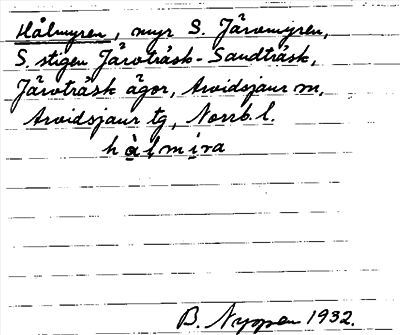 Hålmyren, myr S. Järvmyren,
S. stigen Järvträsk - Sandträsk,
Järvträsk ägor, Arvidsjaur sn,
Arvidsjaur tg, Norrb. l.
hàlmira
B. Nyman 1932.